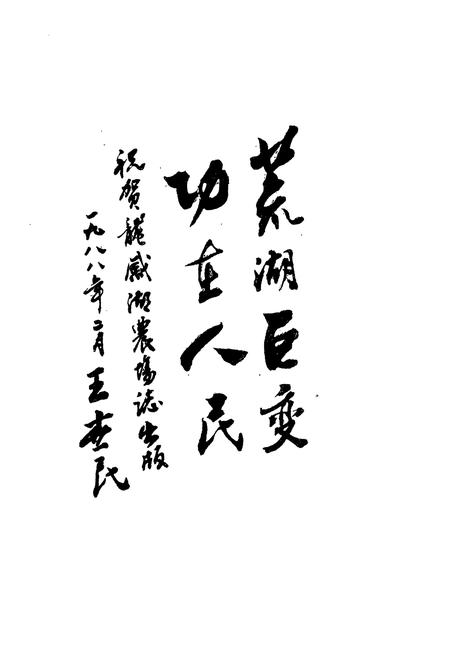 荒湖巨变
功在人民
祝賀龍感湖農場誌出版
一九八八年二月 王